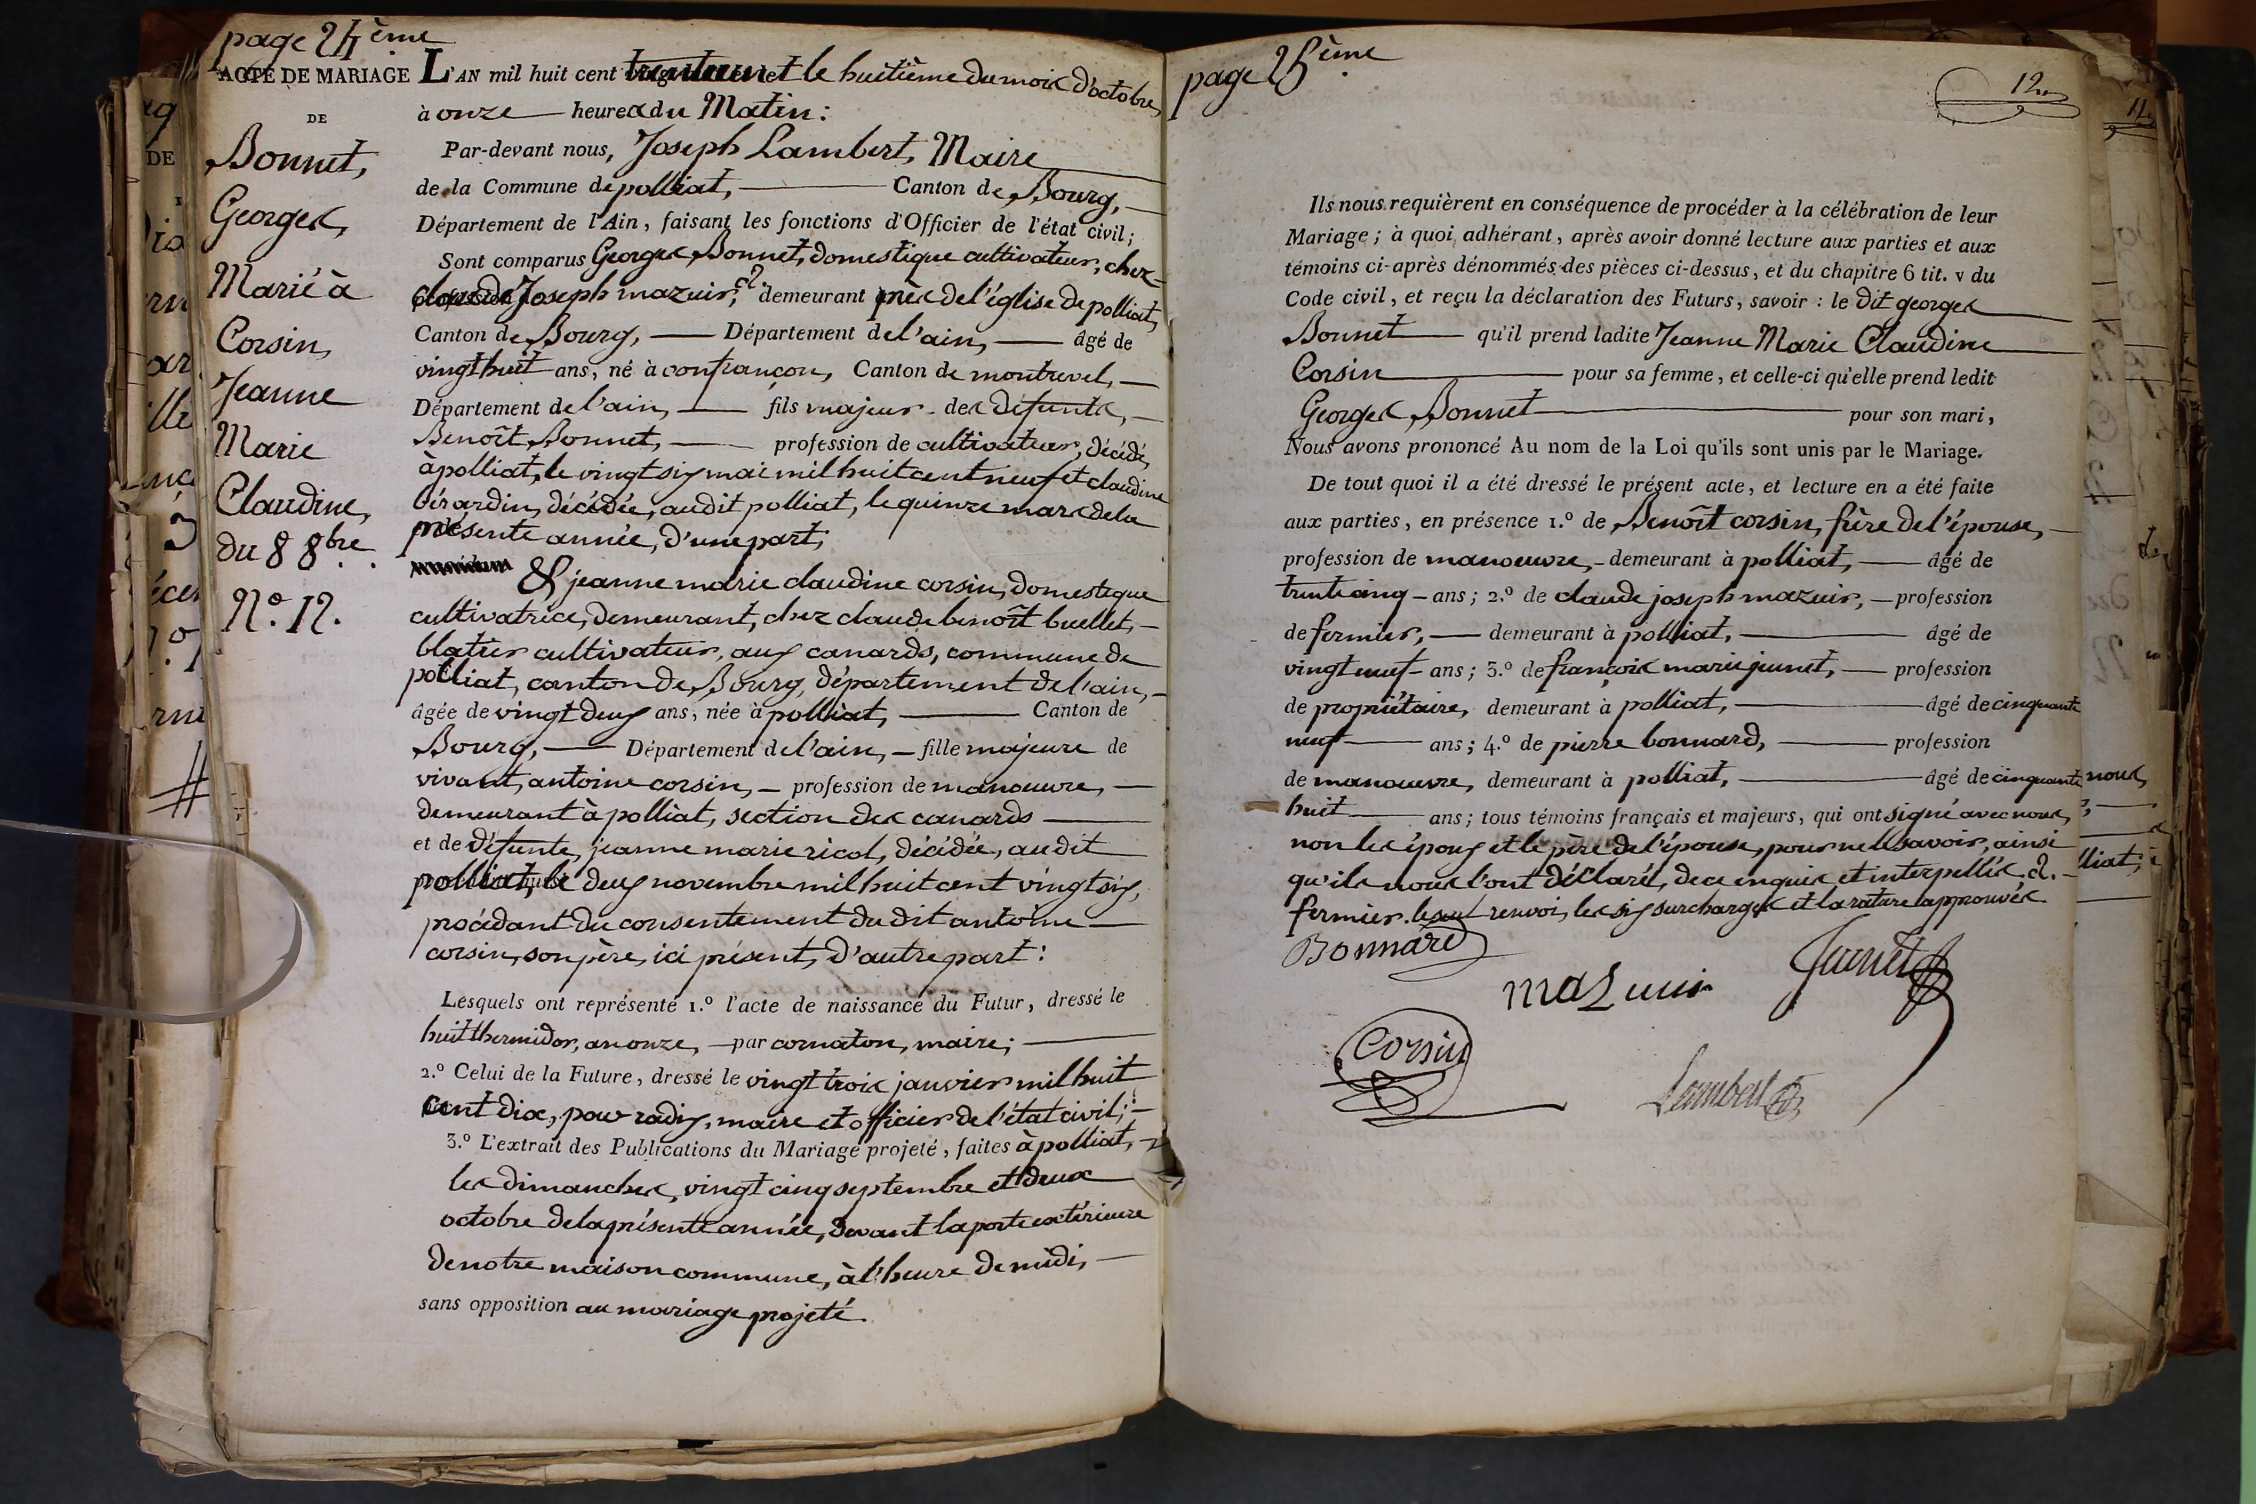 page 24ème
ACTE DE MARIAGE
DE
Bonnet,
Georges,
Marié à
Corsin,
Jeanne
Marie
Claudine,
du 8 8bre.
N.º 12.
L'AN mil huit cent trente un et le huitième du mois d'octobre,
à onze heures du Matin:
Par-devant nous, Joseph Lambert, Maire
de la Commune de polliat, Canton de Bourg,
Département de l'Ain, faisant les fonctions d'Officier de l'état civil;
Sont comparus Georges Bonnet, domestique cultivateur, chez
claude Joseph mazuir, demeurant près de l'église de polliat,
Canton de Bourg, Département de l'ain, âgé de
vingt huit ans, né à confrançon, Canton de montrevel,
Département de l'ain, fils majeur des défunts,
Benoît Bonnet, profession de cultivateur, décédé,
à polliat, le vingt six mai mil huit cent neuf et claudine
bérardin, décédée, audit polliat, le quinze mars de la
présente année, d'une part;
& jeanne marie claudine corsin, domestique
cultivatrice, demeurant, chez claude benoît buellet,
blatier cultivateur, aux canards, commune de
polliat, canton de Bourg, département de l'ain,
âgée de vingt deux ans, née à polliat, Canton de
Bourg, Département de l'ain, fille majeure de
vivant, antoine corsin, profession de manoeuvre,
demeurant à polliat, section des canards
et de défunte, jeanne marie ricol, décédée, audit
polliat, le deux novembre mil huit cent vingt six,
procédant du consentement du dit antoine
corsin, son père, ici présent, d'autre part:
Lesquels ont représenté 1.º l'acte de naissance du Futur, dressé le
huit thermidor, an onze, par cornaton, maire;
2.º Celui de la Future, dressé le vingt trois janvier mil huit
cent dix, par radix, maire et officier de l'état civil;
3.º L'extrait des Publications du Mariage projeté, faites à polliat,
les dimanches, vingt cinq septembre et deux
octobre de la présente année, devant la porte extérieure
de notre maison commune, à l'heure de midi,
sans opposition au mariage projeté.
page 25ème
12
Ils nous requièrent en conséquence de procéder à la célébration de leur
Mariage; à quoi adhérant, après avoir donné lecture aux parties et aux
témoins ci-après dénommés des pièces ci-dessus, et du chapitre 6 tit. v du
Code civil, et reçu la déclaration des Futurs, savoir: le dit georges
Bonnet qu'il prend ladite Jeanne Marie Claudine
Corsin pour sa femme, et celle-ci qu'elle prend ledit
Georges Bonnet pour son mari,
Nous avons prononcé Au nom de la Loi qu'ils sont unis par le Mariage.
De tout quoi il a été dressé le présent acte, et lecture en a été faite
aux parties, en présence 1.º de Benoît corsin, frère de l'épouse,
profession de manoeuvre, demeurant à polliat, âgé de
trente cinq ans; 2.º de claude joseph mazuir, profession
de fermier, demeurant à polliat, âgé de
vingt neuf ans; 3.º de françois marie juenet, profession
de propriétaire, demeurant à polliat, âgé de cinquante
neuf ans; 4.º de pierre bonnard, profession
de manoeuvre, demeurant à polliat, âgé de cinquante
huit ans; tous témoins français et majeurs, qui ont signé avec nous,
non les époux et le père de l'épouse, pour ne le savoir, ainsi
qu'ils nous l'ont déclaré, de ce enquis et interpellés.
fermier. le seul renvoi, les six surcharges et la rature approuvés.
Bonnard
mazuir
Juenet
Corsin
Lambert